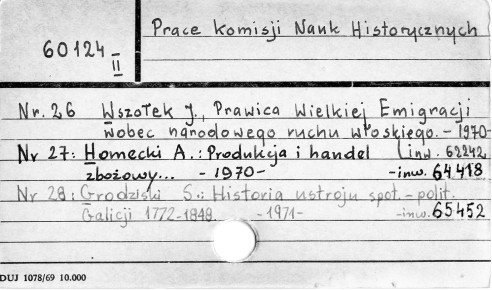 60124 II
Prace Komisji Nauk Historycznych
Nr. 26 Wszołek J., Prawica Wielkiej Emigracji
wobec narodowego ruchu włoskiego. - 1970-
Nr 27: Homecki A.: Produkcja i handel inw. 62242
zbożowy... - 1970- -inw. 64418
Nr 28: Grodziski S.: Historia ustroju społ.-polit.
Galicji 1772-1848. -1971- -inw. 65452
DUJ 1078/69 10.000